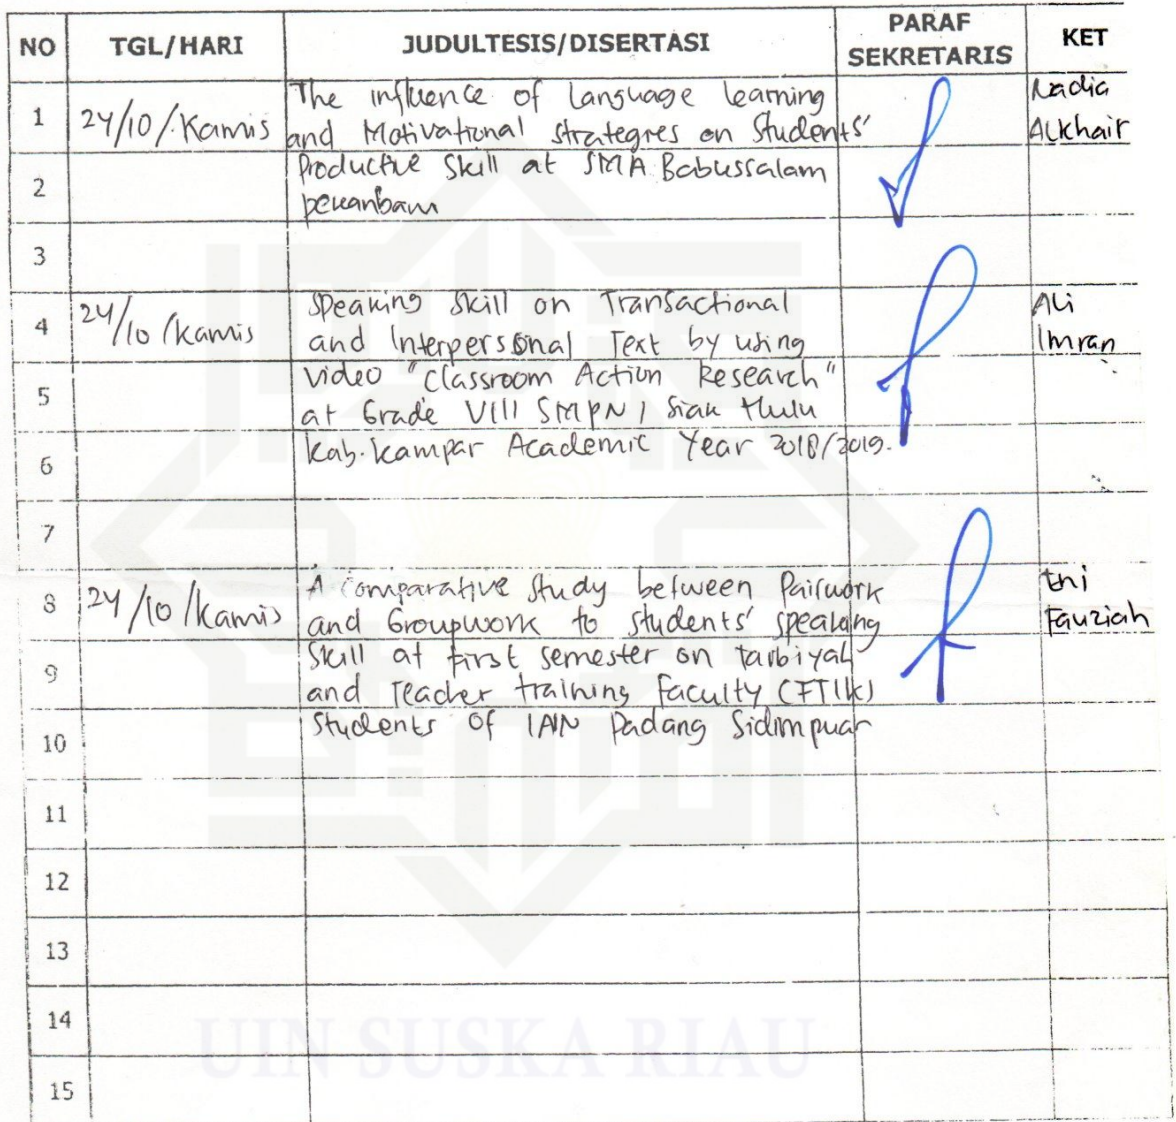 NO TGL/HARI JUDULTESIS/DISERTASI PARAF SEKRETARIS KET
1 24/10/.Kamis The influence of Language learning Nadia
and Motivational strategies on Students' Alkhair
2 Productive Skill at SMA Babussalam
3
4 24/10/Kamis Speaking Skill on Transactional Ali
and Interpersonal Text by using Imran
5 video "Classroom Action Research"
at Grade VIII SMPN 1 Siak Hulu
6 Kab. Kampar Academic Year 2018/2019.
7
8 24/10/Kamis A comparative Study between Pairwork
and Groupwork to students' speaking Fauziah
9 Skill at first semester on tarbiyah
and Teacher training Faculty (FTIK)
10 Students of IAIN Padang Sidimpuan
11
12
13
14
UIN SUSKA RIAU
15